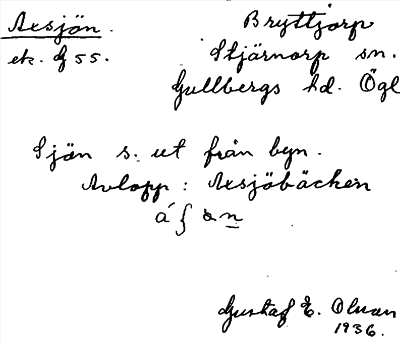 Axsjön. Bryttjorp
ek. G 55. Stjärnorp sn.
Gullbergs hd. Ögl
Sjön s. ut från byn.
Avlopp : Axsjöbäcken
Gustaf E. Olsson
1936.